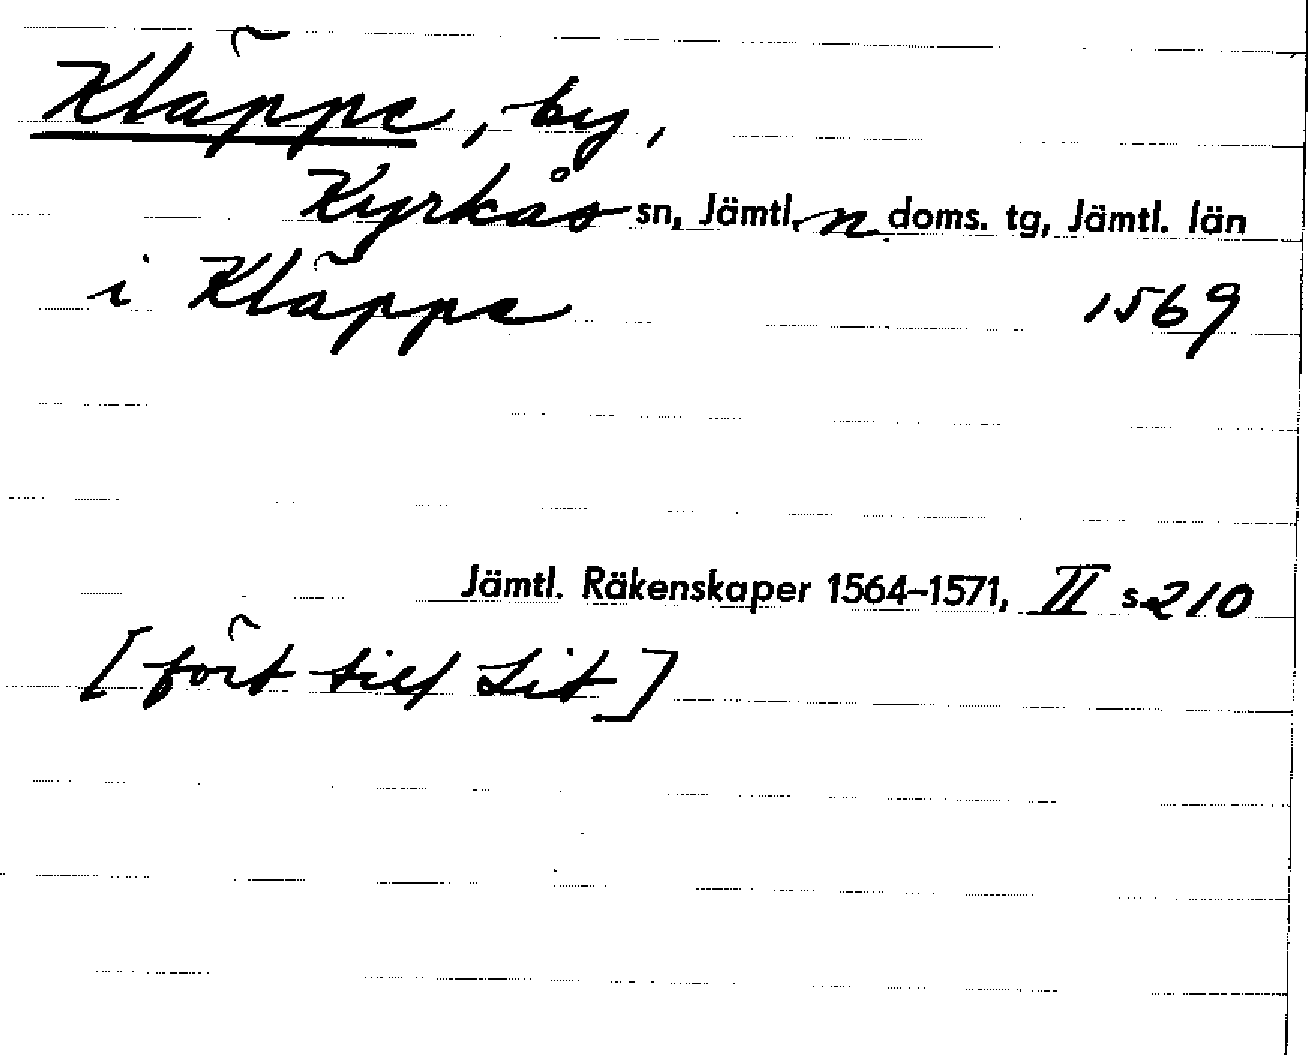 Kläppe, by,
Kyrkås sn, Jämtl. n doms. tg, Jämtl. län
i Kläppe 1569
Jämtl. Räkenskaper 1564–1571, II s. 210
[fört till Lit]